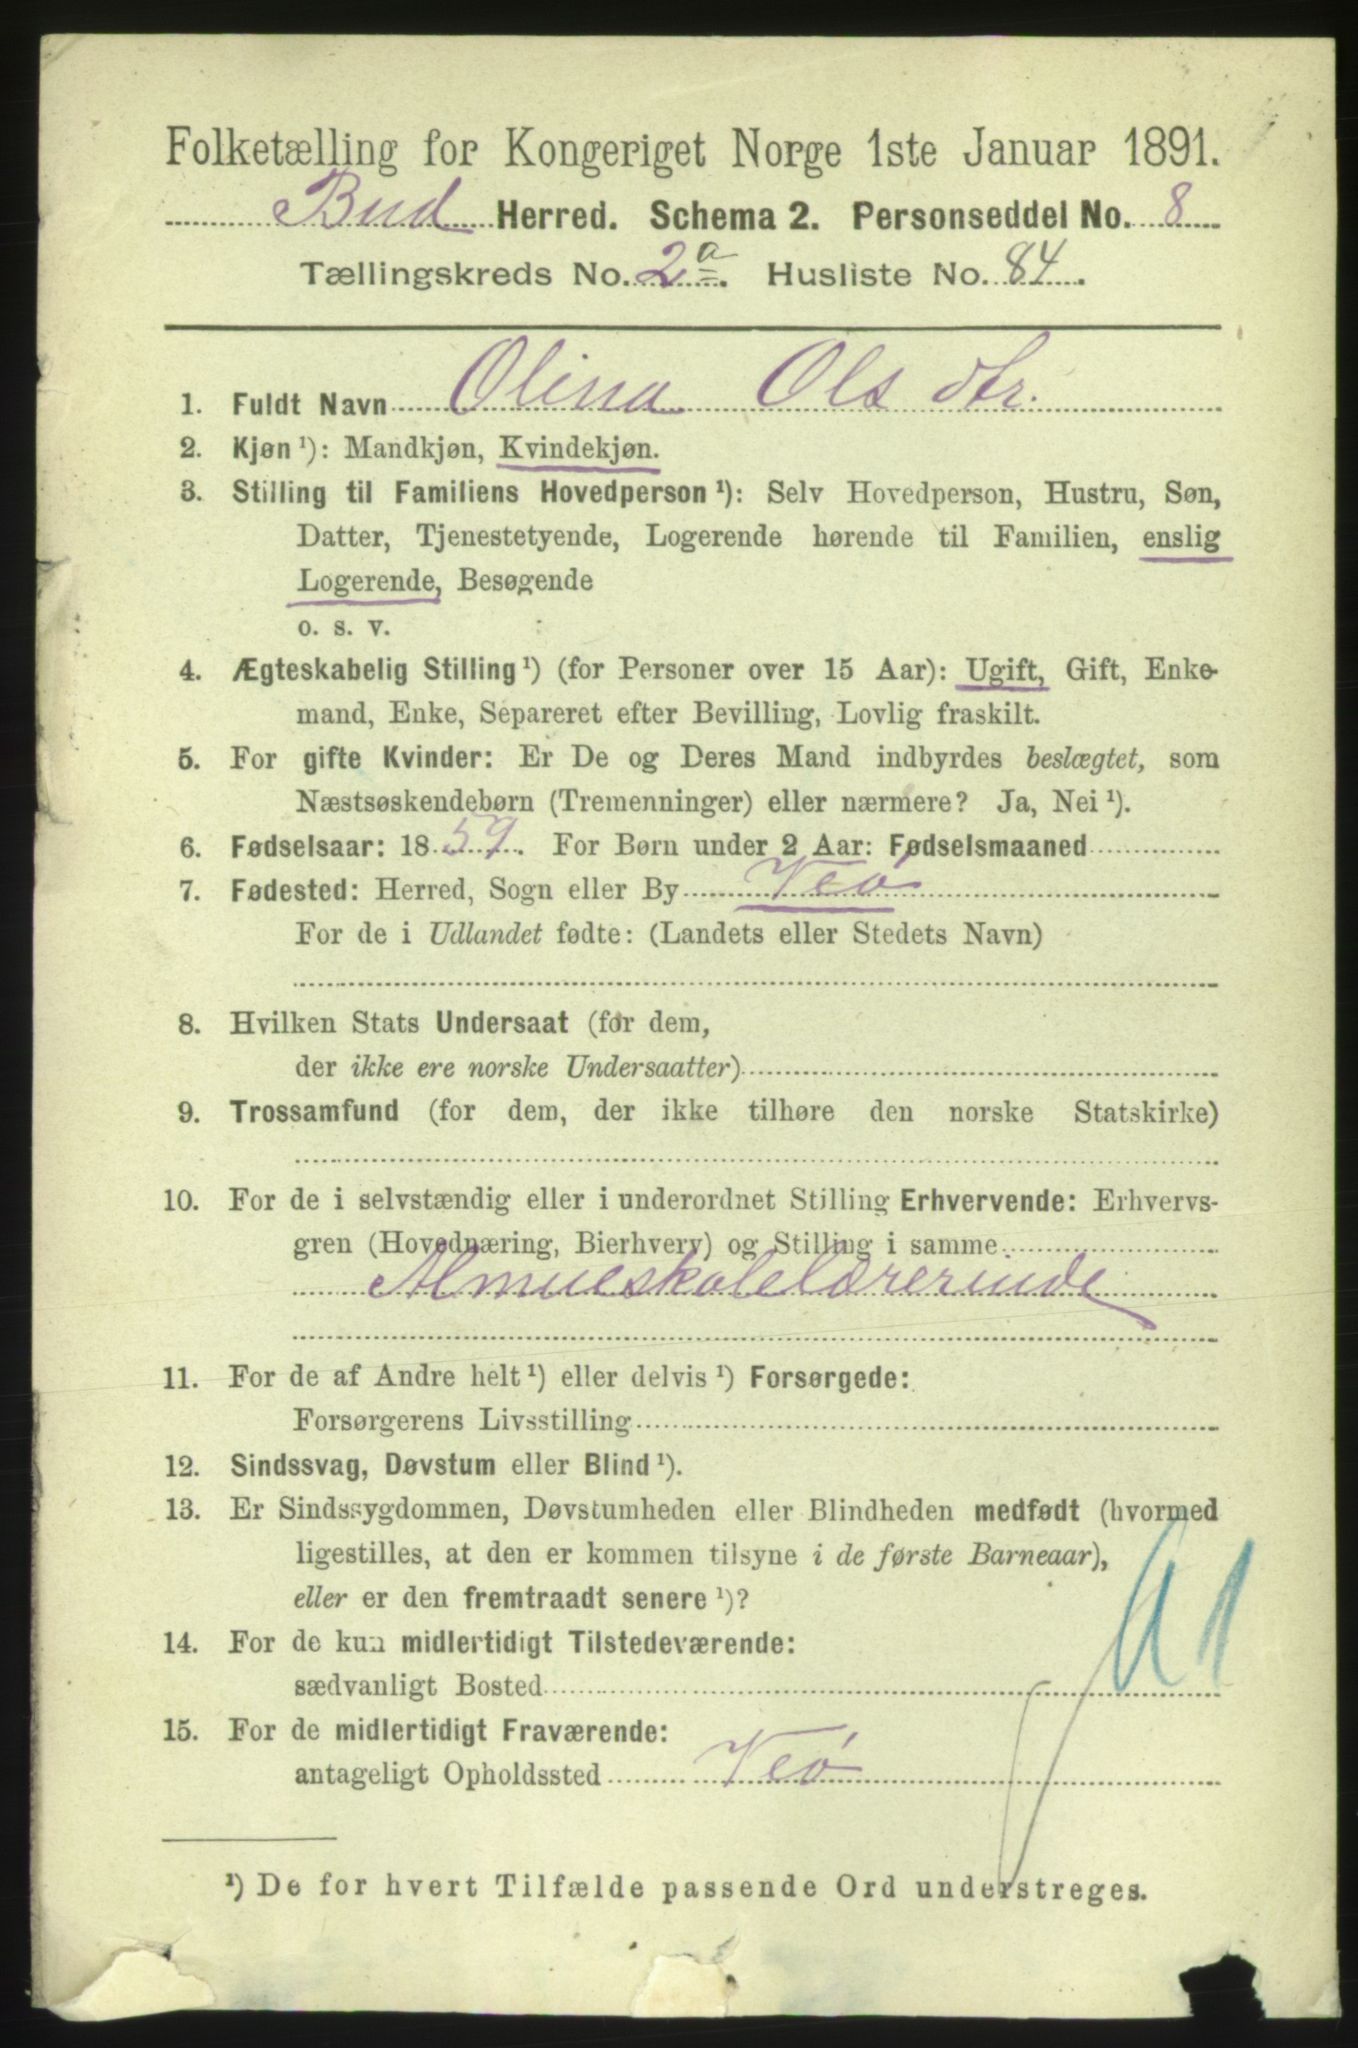 Folketælling for Kongeriget Norge 1ste Januar 1891.
Bud Herred. Schema 2. Personseddel No. 8
Tællingskreds No. 2a. Husliste No. 84.
1. Fuldt Navn Olina Olsdtr.
2. Kjøn ¹): Mandkjøn, Kvindekjøn.
3. Stilling til Familiens Hovedperson ¹): Selv Hovedperson, Hustru, Søn,
Datter, Tjenestetyende, Logerende hørende til Familien, enslig
Logerende, Besøgende
o. s. v.
4. Ægteskabelig Stilling ¹) (for Personer over 15 Aar): Ugift, Gift, Enke-
mand, Enke, Separeret efter Bevilling, Lovlig fraskilt.
5. For gifte Kvinder: Er De og Deres Mand indbyrdes beslægtet, som
Næstsøskendebørn (Tremenninger) eller nærmere? Ja, Nei ¹).
6. Fødselsaar: 1859. For Børn under 2 Aar: Fødselsmaaned
7. Fødested: Herred, Sogn eller By Veø
For de i Udlandet fødte: (Landets eller Stedets Navn)
8. Hvilken Stats Undersaat (for dem,
der ikke ere norske Undersaatter)
9. Trossamfund (for dem, der ikke tilhøre den norske Statskirke)
10. For de i selvstændig eller i underordnet Stilling Erhvervende: Erhvervs-
gren (Hovednæring, Bierhverv) og Stilling i samme
Almueskolelærerinde
11. For de af Andre helt ¹) eller delvis ¹) Forsørgede:
Forsørgerens Livsstilling
12. Sindssvag, Døvstum eller Blind ¹).
13. Er Sindssygdommen, Døvstumheden eller Blindheden medfødt (hvormed
ligestilles, at den er kommen tilsyne i de første Barneaar),
eller er den fremtraadt senere ¹)?
14. For de kun midlertidigt Tilstedeværende:
sædvanligt Bosted
15. For de midlertidigt Fraværende:
antageligt Opholdssted Veø
¹) De for hvert Tilfælde passende Ord understreges.